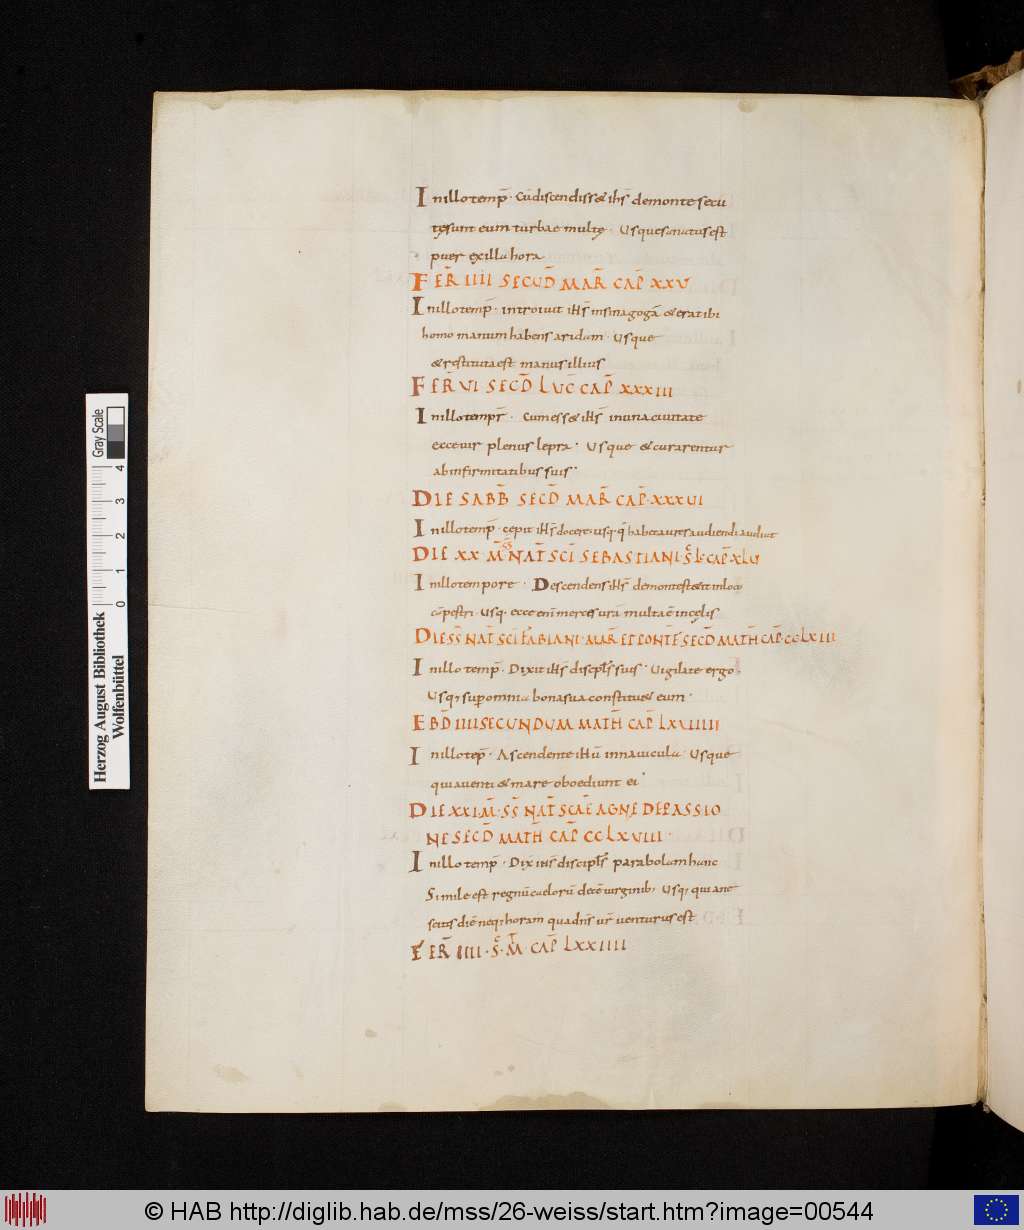 In illo temp̄. Cū discendiss& ih̄s de monte secu
tę sunt eum turbae multę. Usque sanatus est
puer ex illa hora
FER̄ IIII SECUD̄ MAR̄ CAP̄ XXV
In illo temp̄. introiuit ih̄s in sinagogā & erat ibi
homo manum habens aridam. Usque
& restituta est manus illius
FER̄ VI SECD̄ LUC̄ CAP̄ XXXIII
In illo tempr̄. Cum ess& ih̄s in una ciuitate
ecce uir plenus lepra. Usque & curarentur
ab infirmitatibus suis
DIE SABB̄ SECD̄ MAR̄ CAP̄ XXXVI
In illo temp̄. cepit ih̄s docere. usq. q̄ hab& aures audiendi audiat
DIE XX M̄ NAT̄ SCĪ SEBASTIANI S̄ L CAP̄ XLV
In illo tempore. Descendens ih̄s de monte st&it in loco
cāpestri. Usq. ecce enī merces urā multa ē in cęlis
DIE SS̄ NAT̄ SCĪ FABIANI MAR̄ ET PONTF̄ SECD̄ MATH̄ CAP̄ CCLXIII
In illo temp̄. Dixit ih̄s discipl̄s suis. Uigilate ergo
Usq; sup omnia bona sua constitu& eum
EBD̄ IIII SECUNDUM MATH̄ CAP̄ LXVIIIII
In illo tep̄. Ascendente ih̄u in nauicula. Usque
quia uenti & mare oboediunt ei
DIE XXI M̄ SS̄ NAT̄ SCAĒ AGNE DE PASSIO
NE SECD̄ MATH̄ CAP̄ CCLXVIIII
In illo temp̄. Dix ih̄s discipl̄s parabolam hanc
Simile est regnū caelorū decē uirginib; Usq; quia ne
scitis diē neq; horam qua dn̄s ur̄ uenturus est
FER̄ IIII. S̄. M̄ CAP̄ LXXIIII
Gray Scale
0 1 2 3 4
Herzog August Bibliothek
Wolfenbüttel
© HAB http://diglib.hab.de/mss/26-weiss/start.htm?image=00544